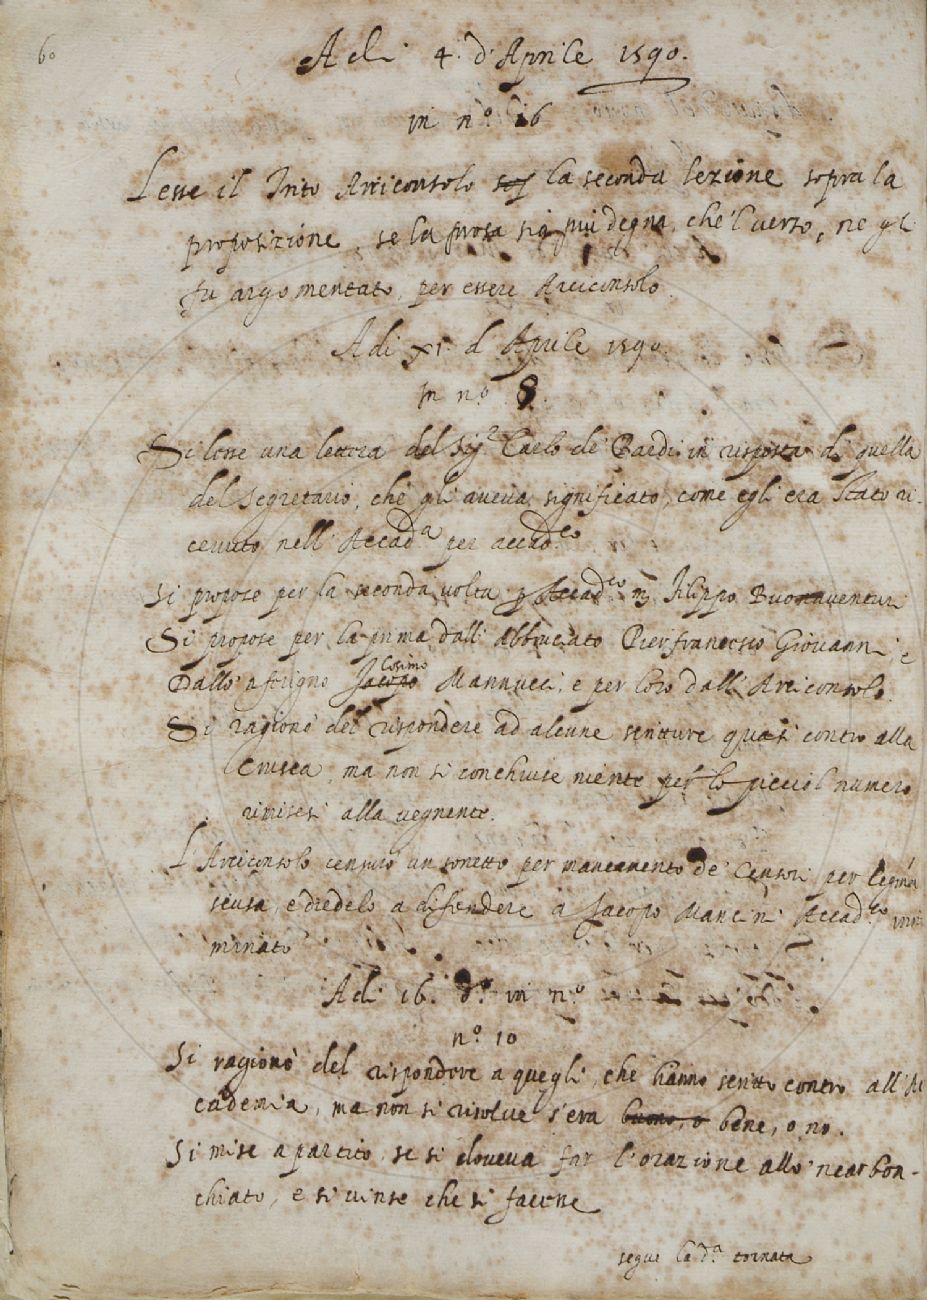 60
Adi 4. d'Aprile 1590.
in n.º 16
Lesse il Trito Arciconsolo la seconda lezione sopra la
proposizione, se la prosa sia piu degna, che 'l verso, ne gli
fu argomentato, per essere Arciconsolo.
Adi XI. d'Aprile 1590
In n.º 8.
Si lesse una lettera del Sig.r Carlo de' Bardi in risposta di quella
del Segretario, che gli aveva significato, come egli era stato ri-
cevuto nell' Accad.a per accad.co
Si propose per la seconda volta p Accad.co m. Filippo Buonaventuri
Si propose per la prima dall' abbruciato Pierfrancesco Giovanni, e
Dallo aferigno Jacopo Cosimo Mannucci, e per loro dall' Arciconsolo.
Si ragionò del rispondere ad alcune scritture quasi contro alla
Crusca, ma non si conchiuse niente per lo picciol numero
rimisesi alla vegnente.
L'Arciconsolo censurò un sonetto per mancamento de' Censori per legittima
scusa, e diedelo a difendere a Jacopo Mancini Accad.co inno
minato
Adi 16. d.º in n.º
n.º 10
Si ragionò del rispondere a quegli, che hanno scritto contro all' Ac
cademia, ma non si risolve s'era buono, o bene, o no.
Si mise a partito, se si doveva far l'orazione allo 'ncarbon-
chiato, e si vinse che si facesse
segue la d.a tornata